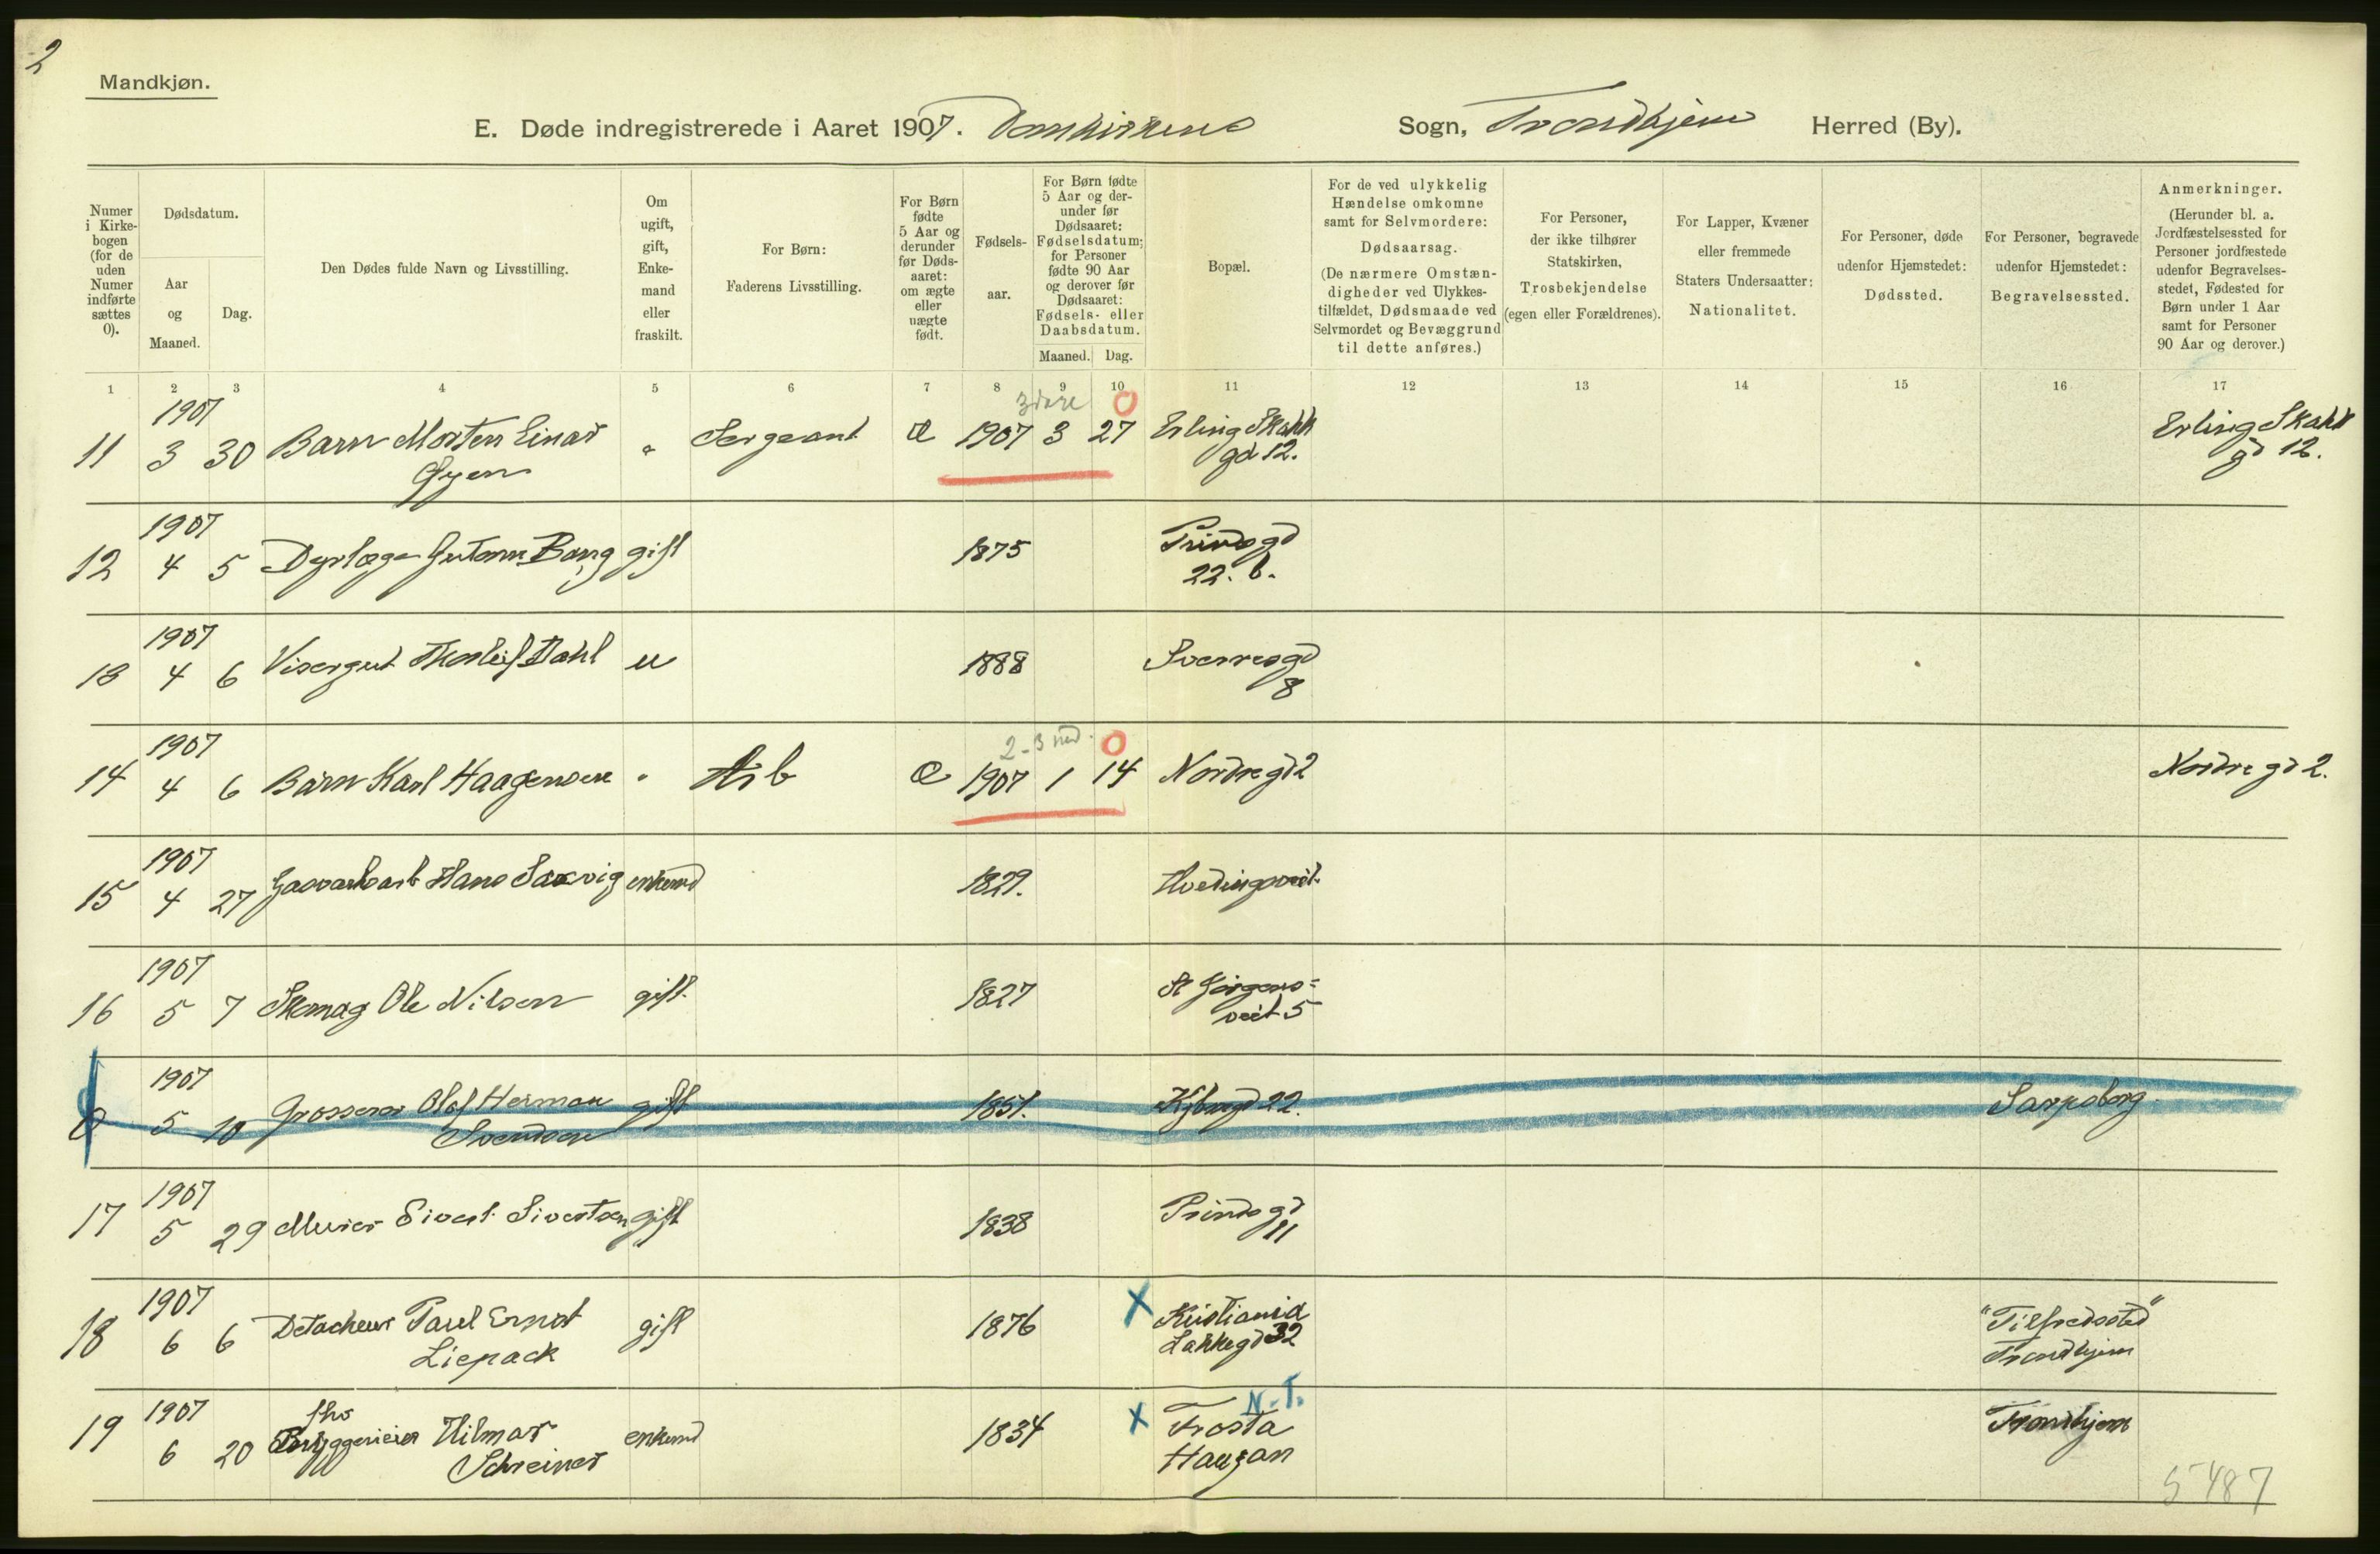 2
Mandkjøn.
E. Døde indregistrerede i Aaret 1907. Domkirkens Sogn, Trondhjem Herred (By).
Numer i Kirkebogen (for de uden Numer indførte sættes 0).
Dødsdatum.
Aar og Maaned.
Dag.
Den Dødes fulde Navn og Livsstilling.
Om ugift, gift, Enkemand eller fraskilt.
For Børn: Faderens Livsstilling.
For Børn fødte 5 Aar og derunder før Dødsaaret: om ægte eller uægte født.
Fødselsaar.
For Børn fødte 5 Aar og derunder før Dødsaaret: Fødselsdatum; for Personer fødte 90 Aar og derover før Dødsaaret: Fødsels- eller Daabsdatum.
Maaned. Dag.
Bopæl.
For de ved ulykkelig Hændelse omkomne samt for Selvmordere: Dødsaarsag. (De nærmere Omstændigheder ved Ulykkestilfældet, Dødsmaade ved Selvmordet og Bevæggrund til dette anføres.)
For Personer, der ikke tilhører Statskirken, Trosbekjendelse (egen eller Forældrenes).
For Lapper, Kvæner eller fremmede Staters Undersaatter: Nationalitet.
For Personer, døde udenfor Hjemstedet: Dødssted.
For Personer, begravede udenfor Hjemstedet: Begravelsessted.
Anmerkninger. (Herunder bl. a. Jordfæstelsessted for Personer jordfæstede udenfor Begravelsesstedet, Fødested for Børn under 1 Aar samt for Personer 90 Aar og derover.)
1 2 3 4 5 6 7 8 9 10 11 12 13 14 15 16 17
1907 0
11 3 30 Barn Morten Einar " Sergeant Æ 1907 3 27 Erling Skakk Erling Skakk
Øyen gd 12. gd 12.
1907
12 4 5 Dyrlæge Gutorm Bang gift 1875 Prinds gd
22. b.
1907
13 4 6 Visergut Thorleif Dahl u 1888 Sverresgd
8
1907 2-3 0
14 4 6 Barn Karl Haagensen " Arb Æ 1907 1 14 Nordregd 2 Nordre gd 2.
1907
15 4 27 Hans Saxvig enkemd 1829. Hvedingsveit.
1907
16 5 7 Skomag Ole Nilsen gift. 1827 St Jørgens=
veit 5
1907
0 5 10 Grosserer Olaf Herman gift 1851. Kjbmgd 22. Sarpsborg
Svendsen
1907
17 5 29 Murer Sivert Sivertsen gift 1838 Prinds gd
11
1907
18 6 6 Detacheur Paul Ernst gift 1876 X Kristiania "Tilfredssted"
Liepack Lakkegd 32 Trondhjem
1907 fhv N. T.
19 6 20 Bryggerieier Hilmar enkemd 1834 X Frosta Trondhjem
Schreiner Haugan
5487